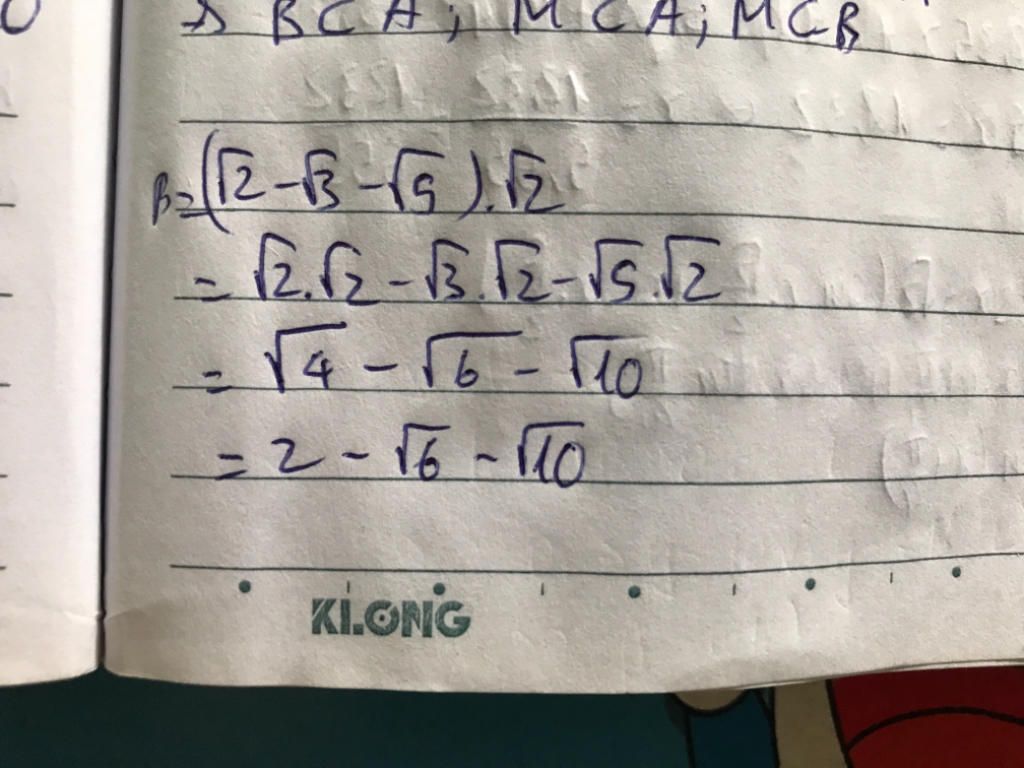 BCA; MCA; MCB
B = (√2 - √3 - √5).√2
= √2.√2 - √3.√2 - √5.√2
= √4 - √6 - √10
= 2 - √6 - √10
KLONG